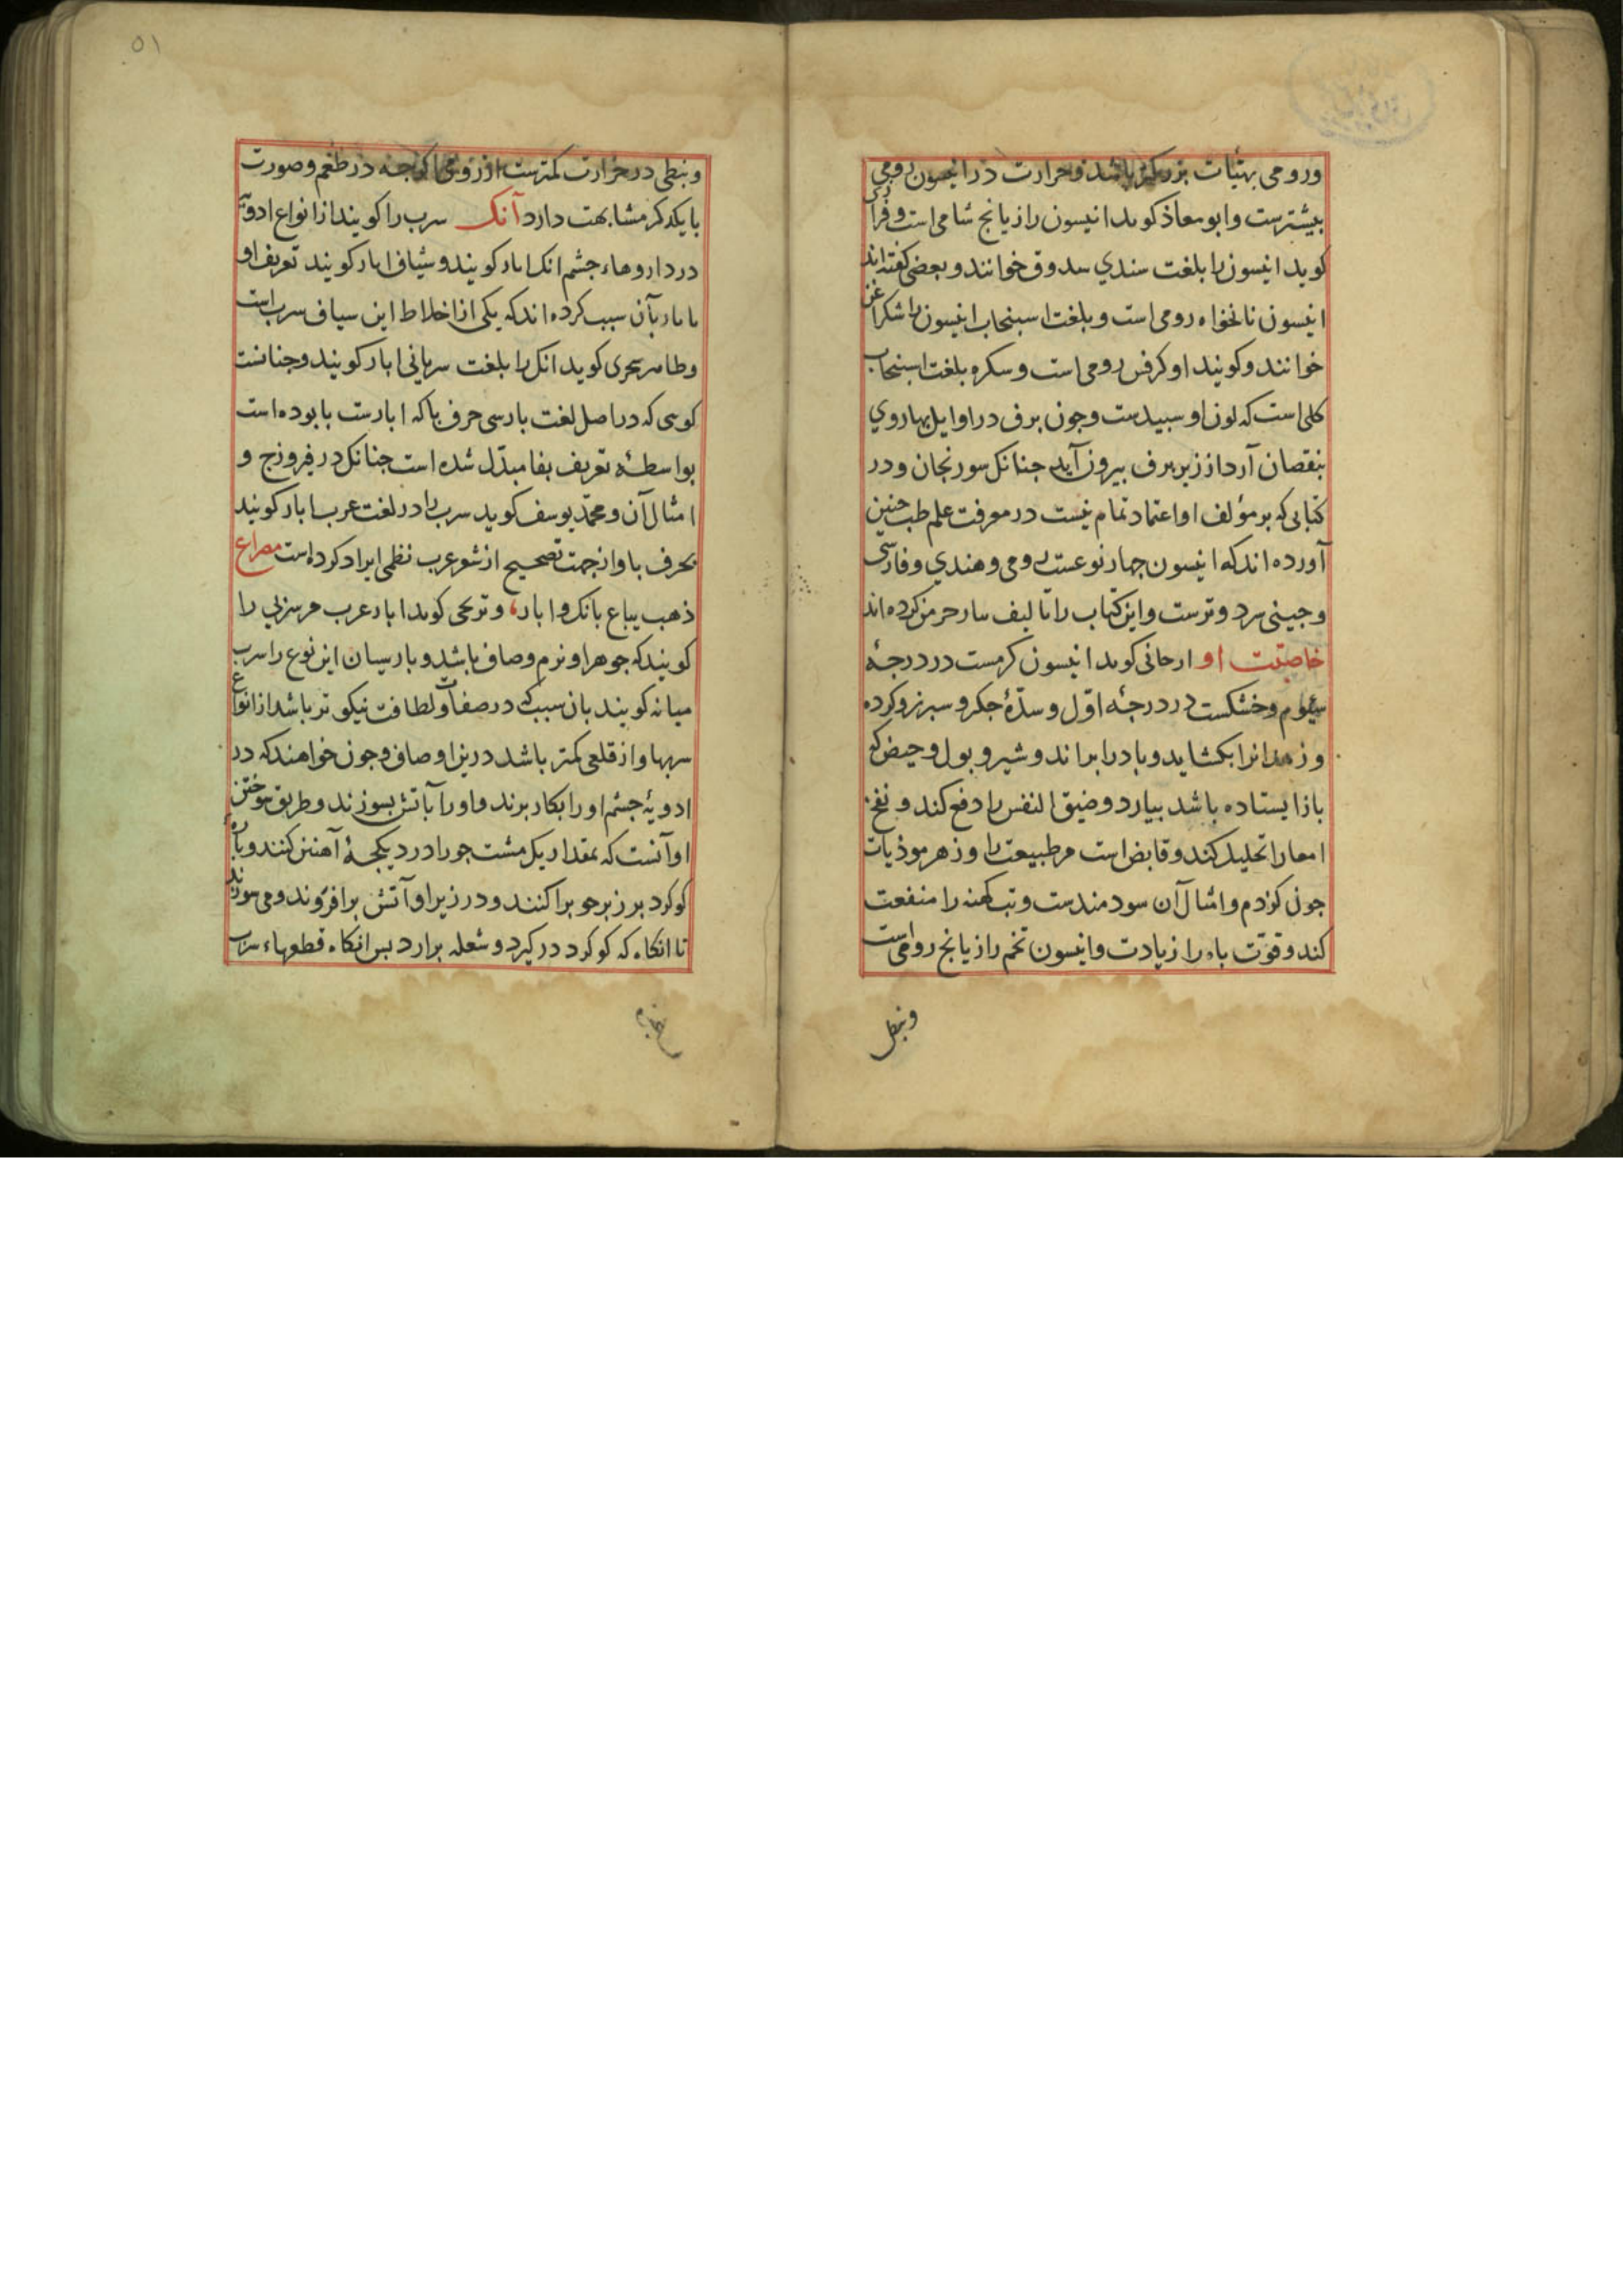 ورومی بهیأت بزرکتر باشد وحرارت در انیسون رومی
بیشترست وابو معاذ کوید انیسون رازیانج شامی است وفراری
کوید انیسون را بلغت سندی سدوق خوانند وبعضی کفته اند
انیسون نانخواه رومی است وبلغت اسبنجاب انیسون را
خوانند وکویند او کرفس رومی است وسکره بلغت اسبنجاب
کلی است که لون او سبیدست وجون برف در اوایل بهار روی
بنقصان آرد از زیر برف بیرون آید جنانک سورنجان ودر
کتابی که بر مؤلف او اعتماد تمام نیست در معرفت علم طب جنین
آورده اند که انیسون جهار نوعست رومی وهندی وفارسی
وجینی سرد وترست واین کتاب را تالیف کرده اند
خاصیت او ارجانی کوید انیسون کرمست در درجهٔ
سیوم وخشکست در درجهٔ اوّل وسدّهٔ جکر وسبرز وکرده
وزهدانرا بکشاید وباد را براند وشیر وبول وحیض که
باز ایستاده باشد بیارد وضیق النفس را دفع کند ونفخ
امعا را تحلیل کند وقابض است مر طبیعت را وزهر موذیات
جون کژدم وامثال آن سودمندست وتب کهنه را منفعت
کند وقوّت باه را زیادت وانیسون تخم رازیانج رومی است
ونبطی
۵۱
ونبطی در حرارت کمترست از رومی اکرجه در طعم وصورت
با یکدکر مشابهت دارد آنک سرب را کویند از انواع ادویه
در داروهاء جشم انک ابار کویند وشیاف ابار کویند تعریف او
بابار بآن سبب کرده اند که یکی از اخلاط این سیاف سرب است
وطاهر سجزی کوید انک را بلغت سریانی ابار کویند وجنانست
کوسی که در اصل لغت بارسی حرف با که ابارست با بوده است
بواسطهٔ تعریف بفا مبدّل شده است جنانک در فیروزج و
امثال آن ومحمّد یوسف کوید سرب را در لغت عرب ابار کویند
بحرف با واز جهت تصحیح از شعر عرب نظمی ایراد کرده است مصراع
ذهب یباع بانک وابار، وترنجی کوید ابار عرب هر سربی را
کویند که جوهر او نرم وصاف باشد وبارسیان این نوع را سرب
میانه کویند بان سبب که در صفات ولطافت نیکوتر باشد از انواع
سربها واز قلعی کمتر باشد درین اوصاف وجون خواهند که در
ادویهٔ جشم او را بکار برند واو را بآتش بسوزند وطریق سوختن
او آنست که بمقدار یک مشت جو را در دیکجهٔ آهنین کنند وباره
کوکرد بر زبر جو براکنند ودر زیر او آتش برافروزند ومی سوزند
تا انکاه که کوکرد در کیرد وشعله برارد بس انکاه قطعهاء سرب